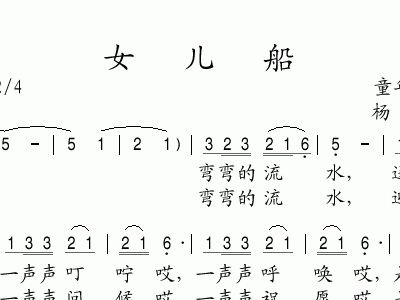 女 儿 船
2/4
童
杨
5 - | 5 | 2 1 ) | 3 2 3 2 1 6 | 5 - |
弯弯的 流 水,
弯弯的 流 水,
1 3 3 2 1 | 2 1 6· | 1 3 3 2 1 | 2 1 6· |
一声声 叮 咛 哎, 一声声 呼 唤 哎,
一声声 问 候 哎, 一声声 祝 愿 哎,